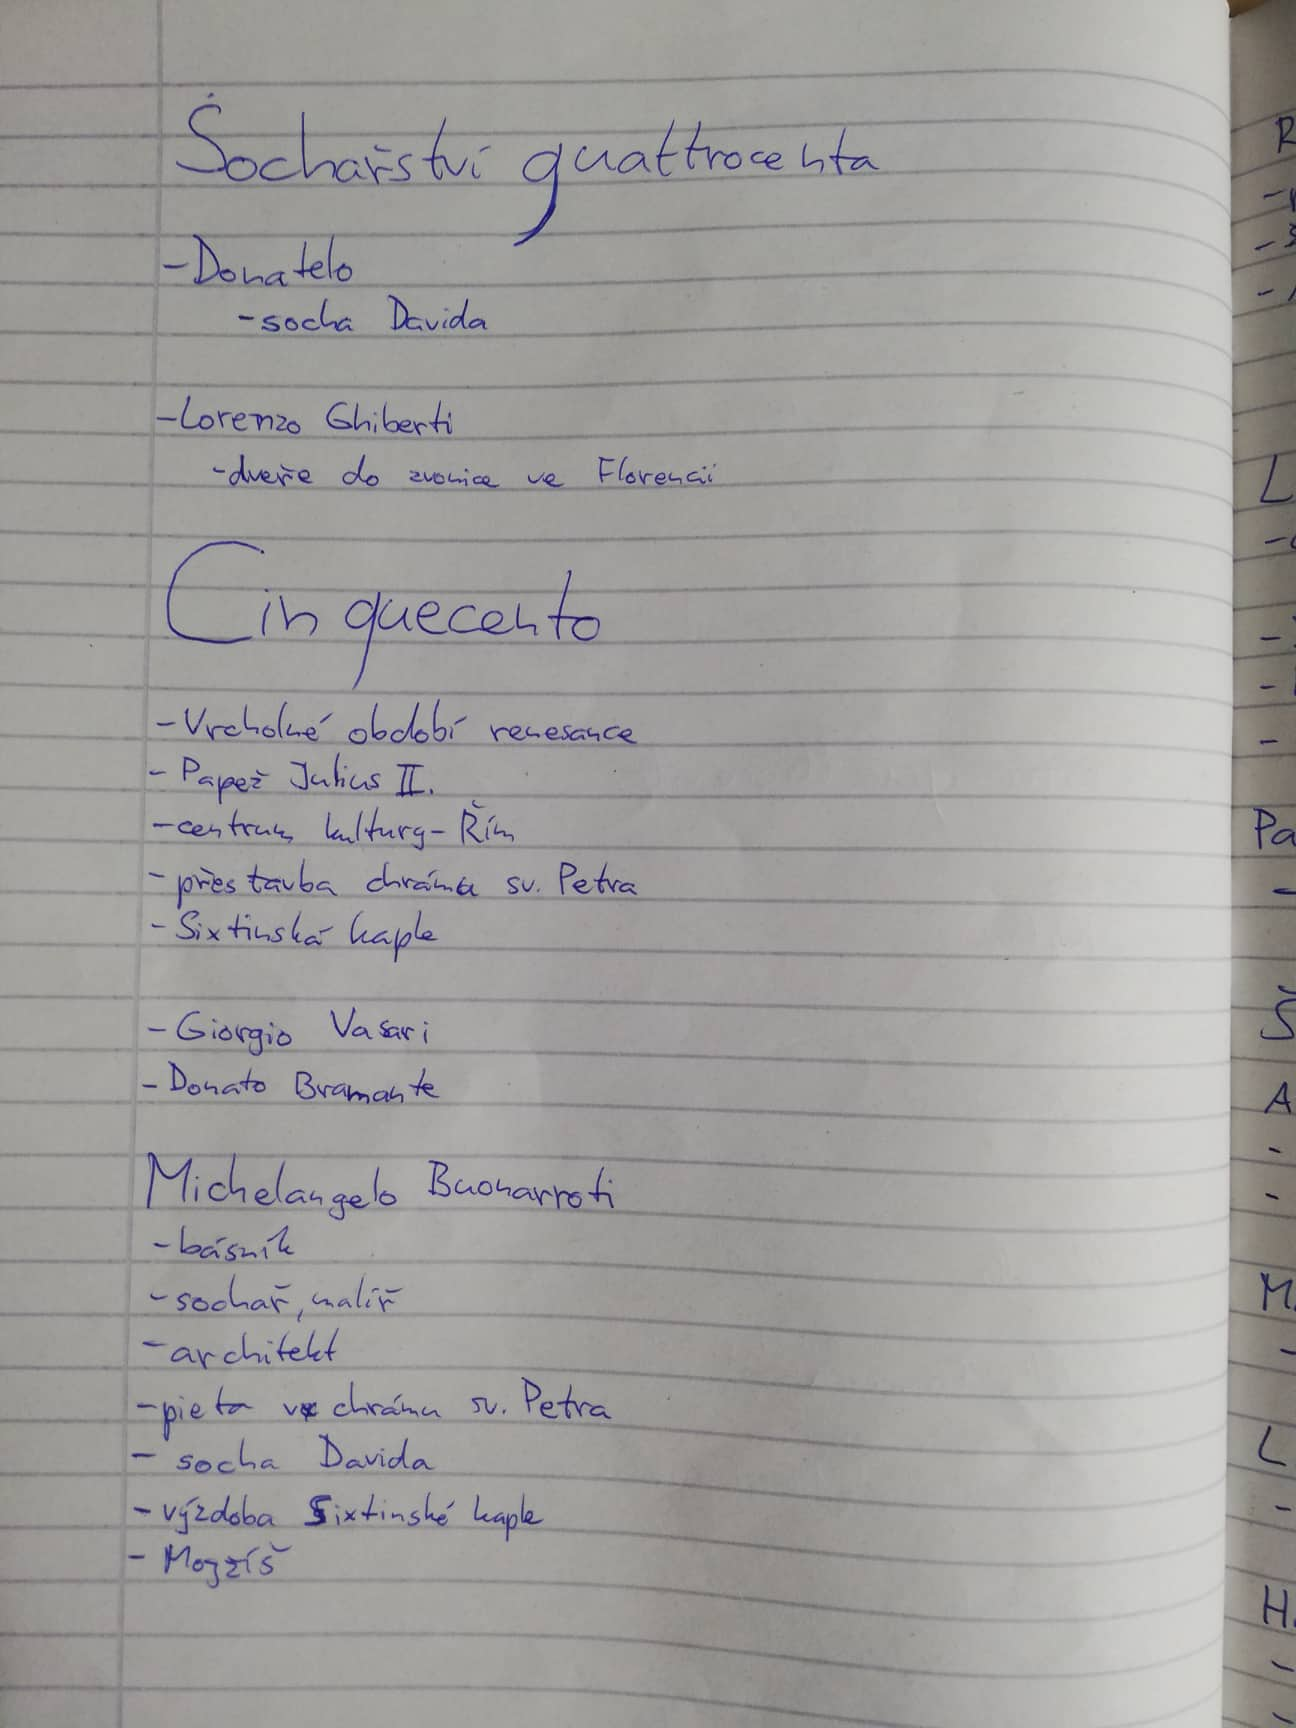 Sochařství quattrocenta
-Donatelo
-socha Davida
-Lorenzo Ghiberti
-dveře do zvonice ve Florencii
Cinquecento
-Vrcholné období renesance
- Papež Julius II.
-centrum kultury- Řím
-přestavba chrámu sv. Petra
- Sixtinská kaple
- Giorgio Vasari
- Donato Bramante
Michelangelo Buonarroti
-básník
-sochař, malíř
-architekt
-pieta v chrámu sv. Petra
- socha Davida
- výzdoba Sixtinské kaple
- Mojžíš